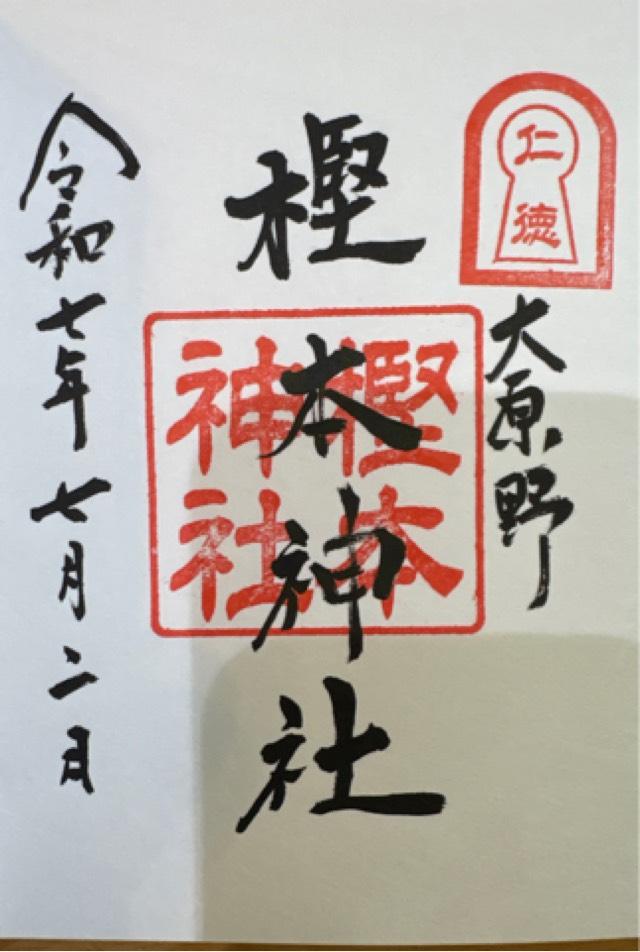 仁徳
大原野
樫本神社
樫本神社
令和七年七月二日